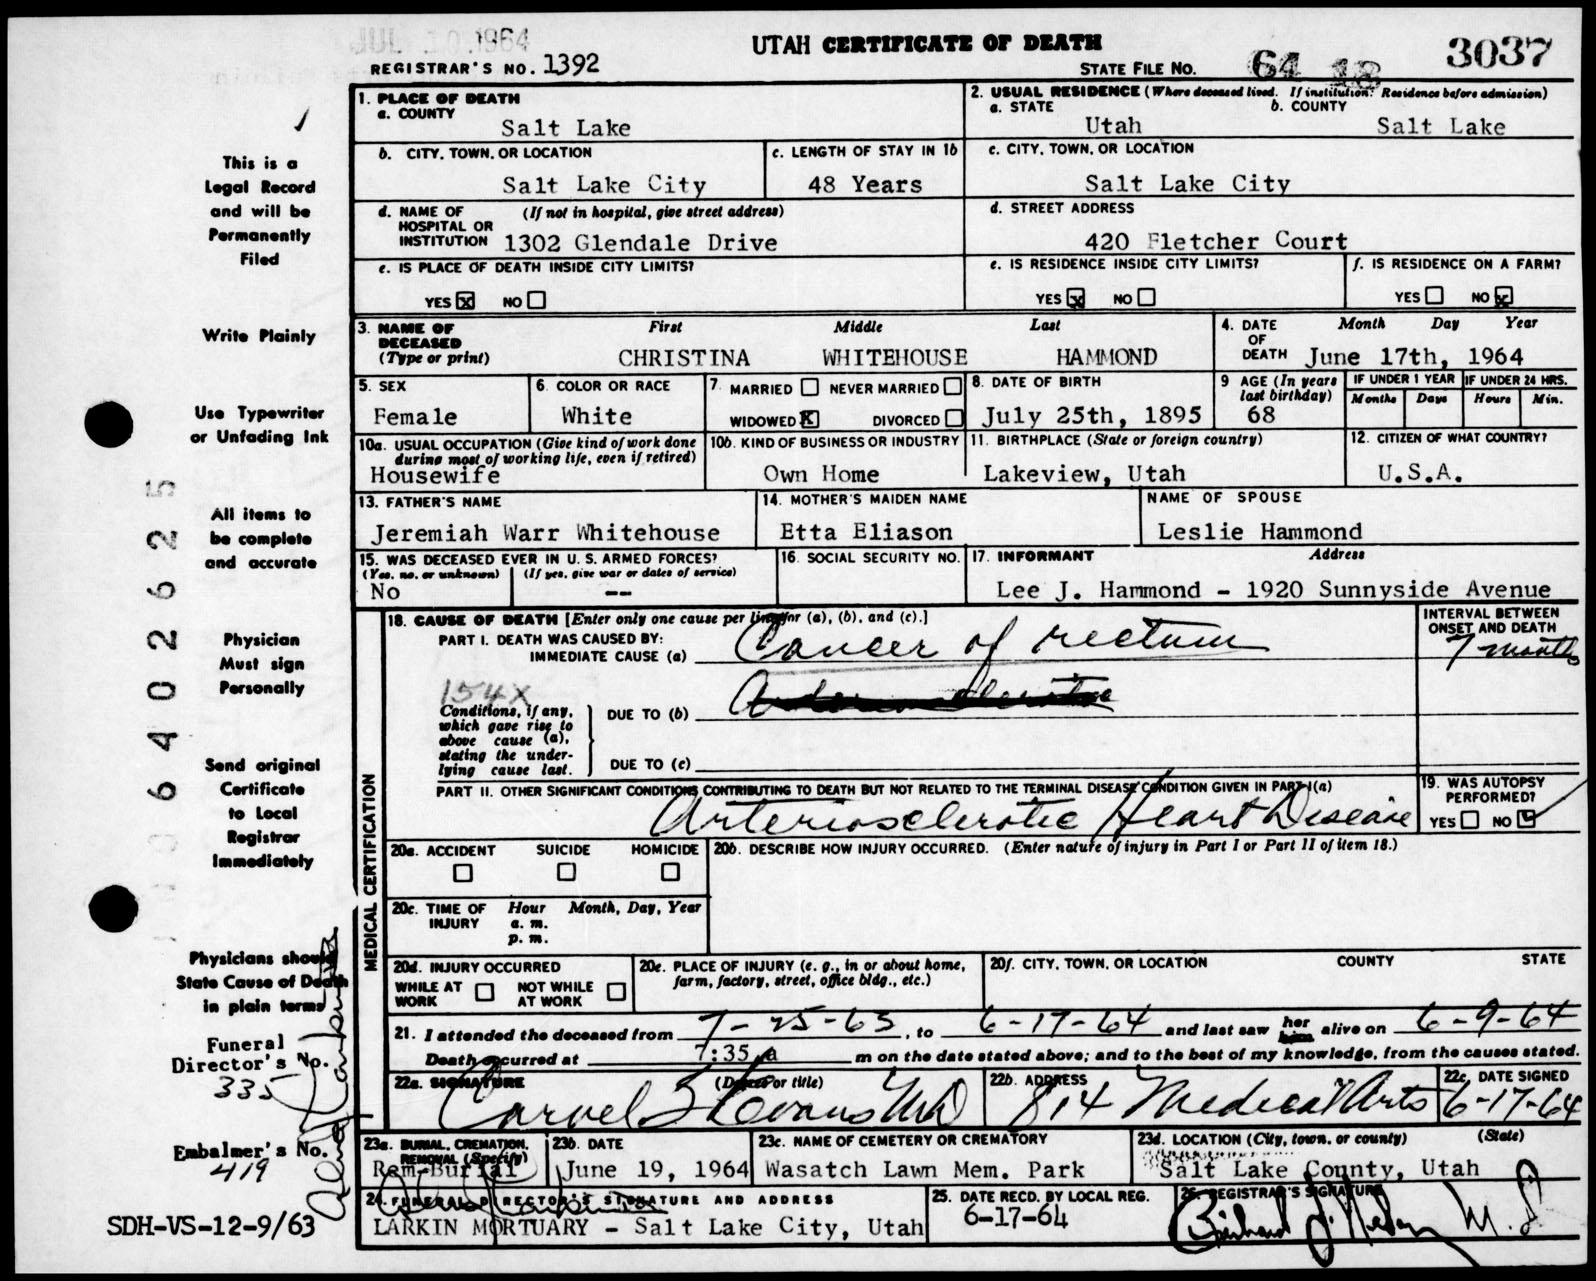 JUL 10 1964
UTAH CERTIFICATE OF DEATH
REGISTRAR'S NO. 1392
STATE FILE NO. 64 18 3037
1. PLACE OF DEATH
a. COUNTY
Salt Lake
2. USUAL RESIDENCE (Where deceased lived. If institution: Residence before admission)
a. STATE b. COUNTY
Utah Salt Lake
b. CITY, TOWN, OR LOCATION
Salt Lake City
c. LENGTH OF STAY IN 1b
48 Years
c. CITY, TOWN, OR LOCATION
Salt Lake City
d. NAME OF (If not in hospital, give street address)
HOSPITAL OR
INSTITUTION 1302 Glendale Drive
d. STREET ADDRESS
420 Fletcher Court
e. IS PLACE OF DEATH INSIDE CITY LIMITS?
YES x NO
e. IS RESIDENCE INSIDE CITY LIMITS?
YES x NO
f. IS RESIDENCE ON A FARM?
YES NO x
3. NAME OF DECEASED (Type or print)
First Middle Last
CHRISTINA WHITEHOUSE HAMMOND
4. DATE OF DEATH Month Day Year
June 17th, 1964
5. SEX
Female
6. COLOR OR RACE
White
7. MARRIED NEVER MARRIED
WIDOWED X DIVORCED
8. DATE OF BIRTH
July 25th, 1895
9 AGE (In years last birthday)
68
IF UNDER 1 YEAR
Months Days
IF UNDER 24 HRS.
Hours Min.
10a. USUAL OCCUPATION (Give kind of work done
during most of working life, even if retired)
Housewife
10b. KIND OF BUSINESS OR INDUSTRY
Own Home
11. BIRTHPLACE (State or foreign country)
Lakeview, Utah
12. CITIZEN OF WHAT COUNTRY?
U.S.A.
13. FATHER'S NAME
Jeremiah Warr Whitehouse
14. MOTHER'S MAIDEN NAME
Etta Eliason
NAME OF SPOUSE
Leslie Hammond
15. WAS DECEASED EVER IN U. S. ARMED FORCES?
(Yes, no, or unknown) (If yes, give war or dates of service)
No --
16. SOCIAL SECURITY NO.
17. INFORMANT Address
Lee J. Hammond - 1920 Sunnyside Avenue
MEDICAL CERTIFICATION
18. CAUSE OF DEATH [Enter only one cause per line for (a), (b), and (c).]
PART I. DEATH WAS CAUSED BY:
IMMEDIATE CAUSE (a) Cancer of rectum
INTERVAL BETWEEN
ONSET AND DEATH
7 months
154X
Conditions, if any,
which gave rise to
above cause (a),
stating the under-
lying cause last.
DUE TO (b)
DUE TO (c)
PART II. OTHER SIGNIFICANT CONDITIONS CONTRIBUTING TO DEATH BUT NOT RELATED TO THE TERMINAL DISEASE CONDITION GIVEN IN PART I(a)
Arteriosclerotic Heart Disease
19. WAS AUTOPSY
PERFORMED?
YES NO
20a. ACCIDENT SUICIDE HOMICIDE
20b. DESCRIBE HOW INJURY OCCURRED. (Enter nature of injury in Part I or Part II of item 18.)
20c. TIME OF INJURY Hour Month, Day, Year
a. m.
p. m.
20d. INJURY OCCURRED
WHILE AT WORK NOT WHILE AT WORK
20e. PLACE OF INJURY (e. g., in or about home,
farm, factory, street, office bldg., etc.)
20f. CITY, TOWN, OR LOCATION COUNTY STATE
21. I attended the deceased from 7-25-63, to 6-17-64 and last saw her him alive on 6-9-64
Death occurred at 7:35 a m on the date stated above; and to the best of my knowledge, from the causes stated.
22a. SIGNATURE (Degree or title)
Carvel S Evans MD
22b. ADDRESS
814 Medical Arts
22c. DATE SIGNED
6-17-64
23a. BURIAL, CREMATION,
REMOVAL (Specify)
Rem-Burial
23b. DATE
June 19, 1964
23c. NAME OF CEMETERY OR CREMATORY
Wasatch Lawn Mem. Park
23d. LOCATION (City, town, or county) (State)
Salt Lake County, Utah
24. FUNERAL DIRECTOR'S SIGNATURE AND ADDRESS
LARKIN MORTUARY - Salt Lake City, Utah
25. DATE RECD. BY LOCAL REG.
6-17-64
26. REGISTRAR'S SIGNATURE
This is a
Legal Record
and will be
Permanently
Filed
Write Plainly
Use Typewriter
or Unfading Ink
All items to
be complete
and accurate
Physician
Must sign
Personally
Send original
Certificate
to Local
Registrar
Immediately
Physicians should
State Cause of Death
in plain terms
Funeral
Director's No.
335
Embalmer's No.
419
SDH-VS-12-9/63
6402625